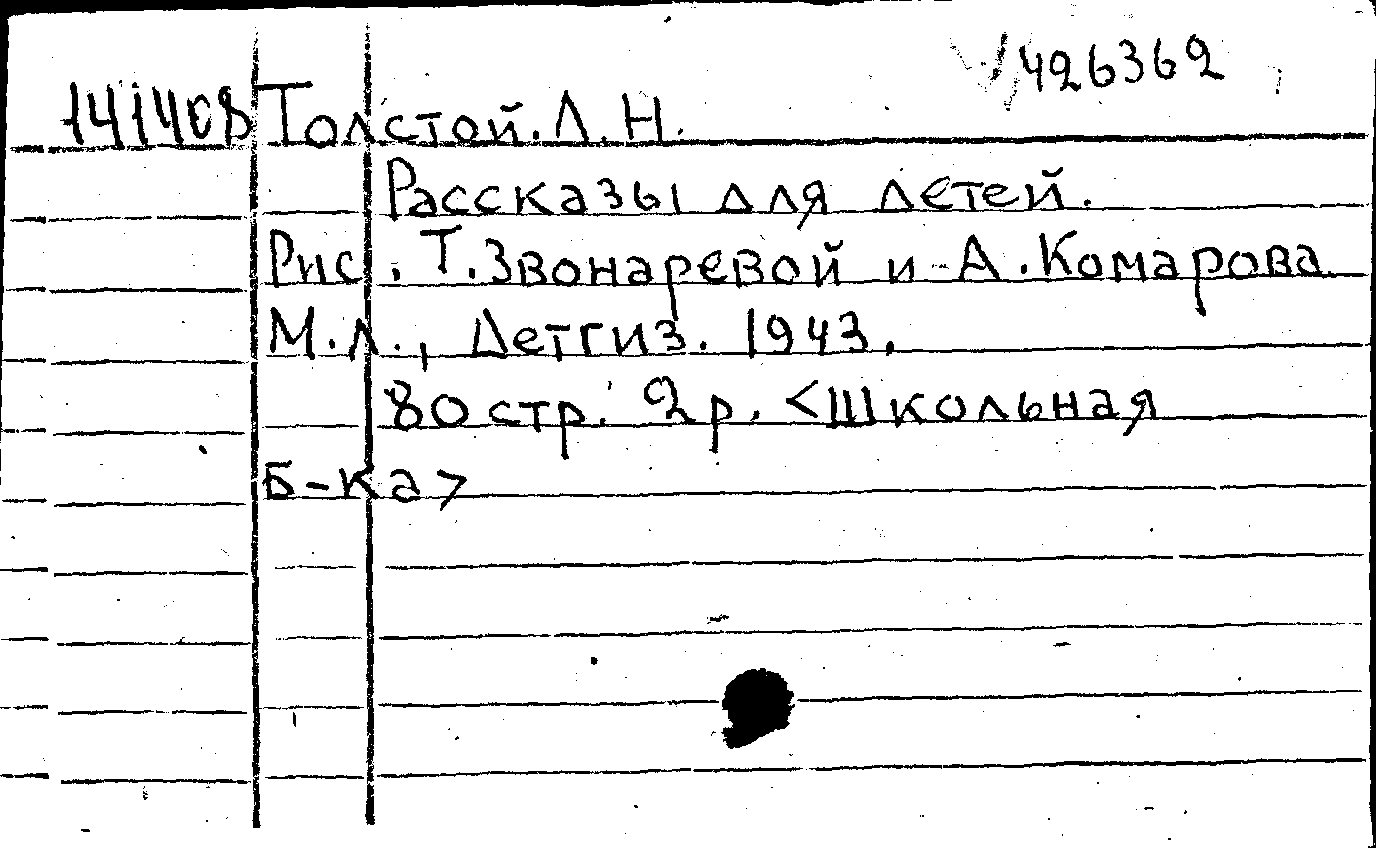 426362
141408 Толстой. Л. Н.
Рассказы для детей.
Рис. Т. Звонаревой и А. Комарова
М. л., Детгиз. 1943.
80 стр. 2 р. <Школьная
Б-ка>